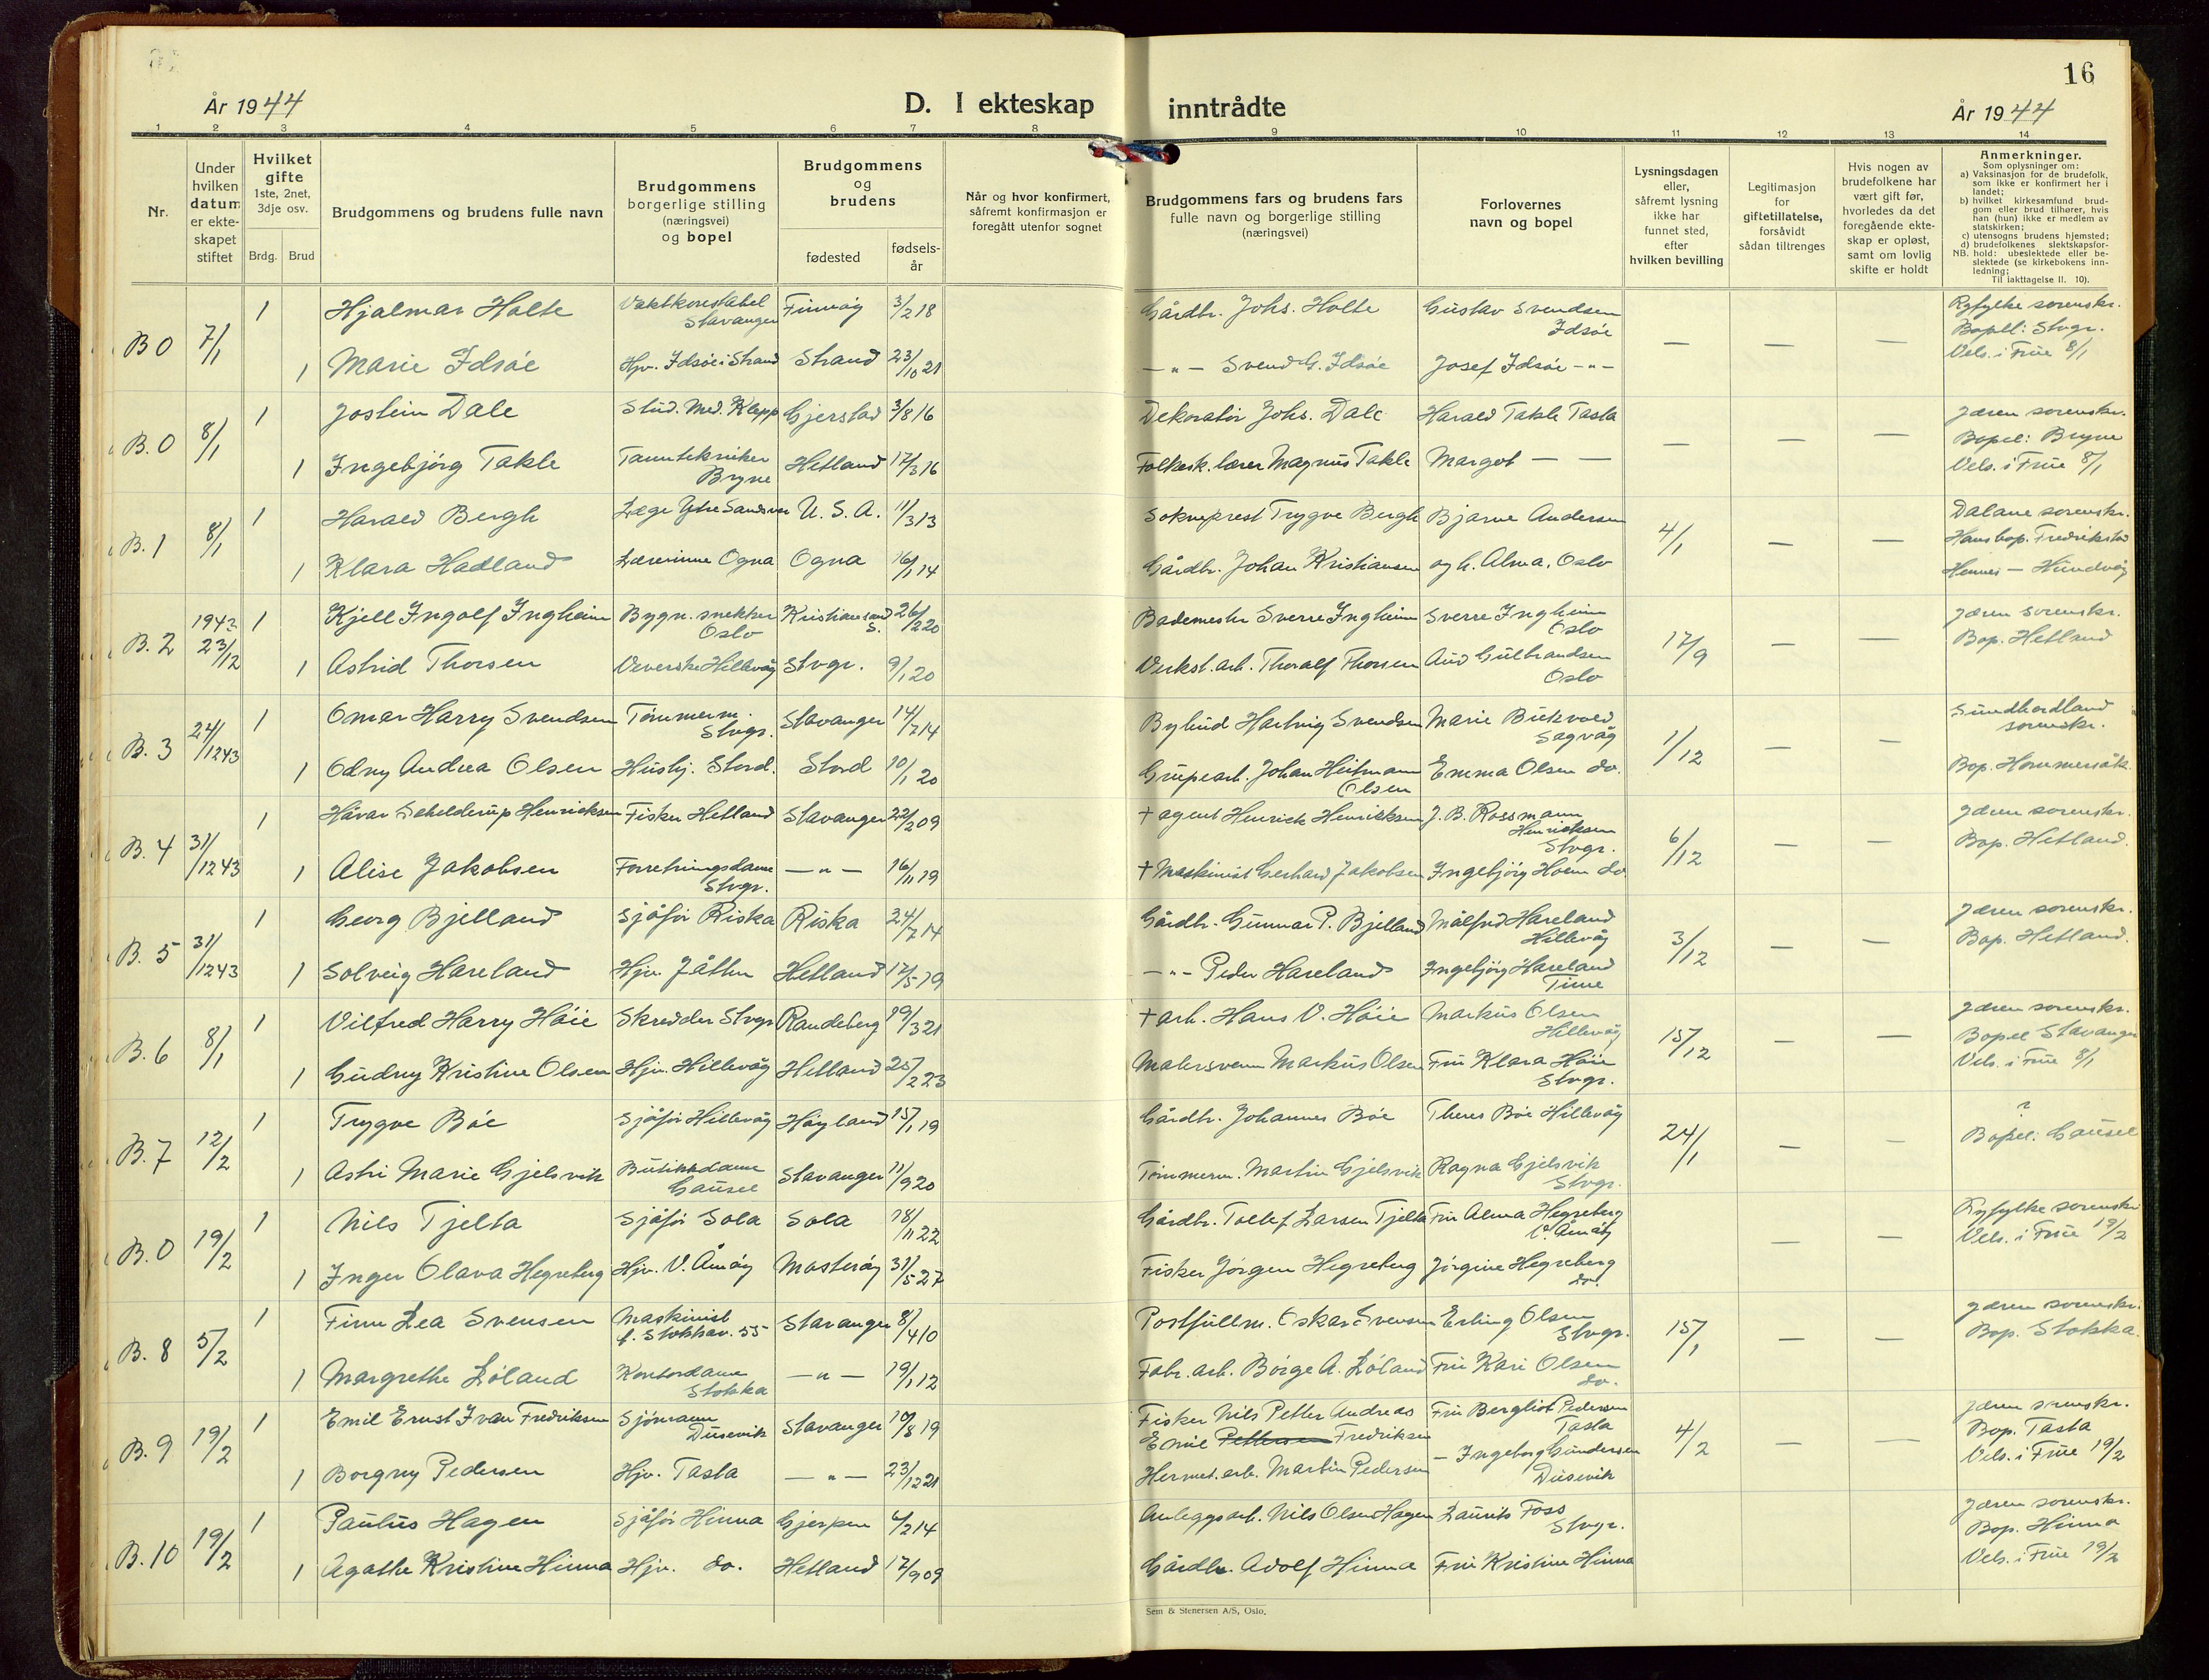 16
År 1944
D. I ekteskap inntrådte
År 1944
1 2 3 4 5 6 7 8 9 10 11 12 13 14
Nr.
Under
hvilken
datum
er ekte-
skapet
stiftet
Hvilket
gifte
1ste, 2net,
3dje osv.
Brdg. Brud
Brudgommens og brudens fulle navn
Brudgommens
borgerlige stilling
(næringsvei)
og bopel
Brudgommens
og
brudens
fødested
fødsels-
år
Når og hvor konfirmert,
såfremt konfirmasjon er
foregått utenfor sognet
Brudgommens fars og brudens fars
fulle navn og borgerlige stilling
(næringsvei)
Forlovernes
navn og bopel
Lysningsdagen
eller,
såfremt lysning
ikke har
funnet sted,
efter
hvilken bevilling
Legitimasjon
for
giftetillatelse,
forsåvidt
sådan tiltrenges
Hvis nogen av
brudefolkene har
vært gift før,
hvorledes da det
foregående ekte-
skap er opløst,
samt om lovlig
skifte er holdt
Anmerkninger.
Som oplysninger om:
a) Vaksinasjon for de brudefolk,
som ikke er konfirmert her i
landet;
b) hvilket kirkesamfund brud-
gom eller brud tilhører, hvis
han (hun) ikke er medlem av
statskirken;
c) utensogns brudens hjemsted;
d) brudefolkenes slektskapsfor-
hold: ubeslektede eller be-
slektede (se kirkebokens inn-
ledning;
NB.
Til iakttagelse II. 10).
B 0 7/1 1 Hjalmar Holte Vaktkonstabel Stavanger Finnøy 3/2 18 Gårdbr. Johs. Holte Gustav Svendsen Idsøe — — — Ryfylke sorenskr. Bopel: Stvgr. Vels. i Frue 8/1
1 Marie Idsøe Hjv. Idsøe i Strand Strand 23/10 21 —"— Svend G. Idsøe Josef Idsøe —"—
B. 0 8/1 1 Jostein Dale Stud. Med. Klepp Gjerstad 3/8 16 Dekoratør Johs. Dale Harald Takle Tasta — — — Jæren sorenskr. Bopel: Bryne Vels. i Frue 8/1
1 Ingebjørg Takle Tanntekniker Bryne Hetland 17/3 16 Folkesk. lærer Magnus Takle Margot — —
B. 1 8/1 1 Harald Bergh Læge Ytre Sandsvær U. S. A. 11/3 13 Sokneprest Trygve Bergh Bjarne Andersen 4/1 — — Dalane sorenskr. Hans bop. Fredrikstad Hennes — Hundvåg
1 Klara Hadland Lærerinne Ogna Ogna 16/1 14 Gårdbr. Johan Kristiansen og h. Alma, Oslo
B. 2 1943 23/12 1 Kjell Ingolf Ingheim Bygn. snekker Oslo Kristiansand S. 26/2 20 Bademester Sverre Ingheim Sverre Ingheim Oslo 17/9 — — Jæren sorenskr. Bop. Hetland
1 Astrid Thorsen Veverske Hillevåg Stvgr. 9/1 20 Verkst. arb. Thoralf Thorsen Aud Gulbrandsen Oslo
B. 3 24/12 43 1 Omar Harry Svendsen Tømmerm. Stvgr. Stavanger 14/7 14 Bybud Hartvig Svendsen Marie Sagvåg 1/12 — — Sundhordland sorenskr. Bop. Hommersåk.
1 Odny Andrea Olsen Hushj. Stord. Stord 10/1 20 Grubearb. Johan Heitmann Olsen Emma Olsen do.
B. 4 31/12 43 1 Håvar Schelderup Henricksen Fisker Hetland Stavanger 22/2 09 + agent Henrick Henricksen J. B. Rossmann Henricksen Stvgr. 6/12 — — Jæren sorenskr. Bop. Hetland.
1 Alise Jakobsen Forretningsdame Stvgr. —"— 16/11 19 + Maskinist Gerhard Jakobsen Ingebjørg Hoem do
B. 5 31/12 43 1 Georg Bjelland Sjåfør Riska Riska 24/7 14 Gårdbr. Gunnar P. Bjelland Målfrid Hareland Hillevåg 3/12 — — Jæren sorenskr. Bop. Hetland.
1 Solveig Hareland Hjv. Jåtten Hetland 17/5 19 —"— Peder Hareland Ingebjørg Hareland Time
B. 6 8/1 1 Vilfred Harry Høie Skredder Stvgr Randeberg 19/3 21 + arb. Hans V. Høie Markus Olsen Hillevåg 15/12 — — Jæren sorenskr. Bopel Stavanger Vels. i Frue 8/1
1 Gudny Kristine Olsen Hjv. Hillevåg Hetland 25/2 23 Malersvenn Markus Olsen Fru Klara Høie Stvgr.
B. 7 12/2 1 Trygve Bøe Sjåfør Hillevåg Høyland 15/1 19 Gårdbr. Johannes Bøe Theres Bøe Hillevåg 24/1 — — ? Bopel: Gausel
1 Astri Marie Gjelsvik Butikkdame Gausel Stavanger 11/9 20 Tømmerm. Martin Gjelsvik Ragna Gjelsvik Stvgr.
B. 0 19/2 1 Nils Tjelta Sjåfør Sola Sola 18/11 22 Gårdbr. Tollef Larsen Tjelta Fru Alma Hegreberg V. Åmøy — — Ryfylke sorenskr Vels. i Frue 19/2
1 Inger Olava Hegreberg Hjv. V. Åmøy Mosterøy 31/5 27 Fisker Jørgen Hegreberg Jørgine Hegreberg do.
B. 8 5/2 1 Finn Lea Svensen Maskinist f. Stokkav. 55 Stavanger 8/4 10 Postfullm. Oskar Svensen Erling Olsen Stvgr. 15/1 — — Jæren sorenskr. Bop. Stokka.
1 Margrethe Løland Kontordame Stokka —"— 19/1 12 Fabr. arb. Børge A. Løland Fru Kari Olsen do.
B. 9 19/2 1 Emil Ernst Ivan Fredriksen Sjømann Dusevik Stavanger 10/8 19 Fisker Nils Petter Andreas Emil Pettersen Fredriksen Fru Bergliot Pedersen Tasta 4/2 — — Jæren sorenskr. Bop. Tasta Vels. i Frue 19/2
1 Borgny Pedersen Hjv. Tasta —"— 23/12 21 Hermet. arb. Martin Pedersen — Ingeborg Gundersen Dusevik
B. 10 19/2 1 Paulus Hagen Sjåfør Hinna Gjerpen 4/2 14 Anleggsarb. Nils Olsen Hagen Laurits Foss Stvgr. Jæren sorenskr. Bop. Hinna Vels. i Frue 19/2
1 Agathe Kristine Hinna Hjv. do. Hetland 17/9 09 Gårdbr. Adolf Hinna Fru Kristine Hinna
Sem & Stenersen A/S, Oslo.